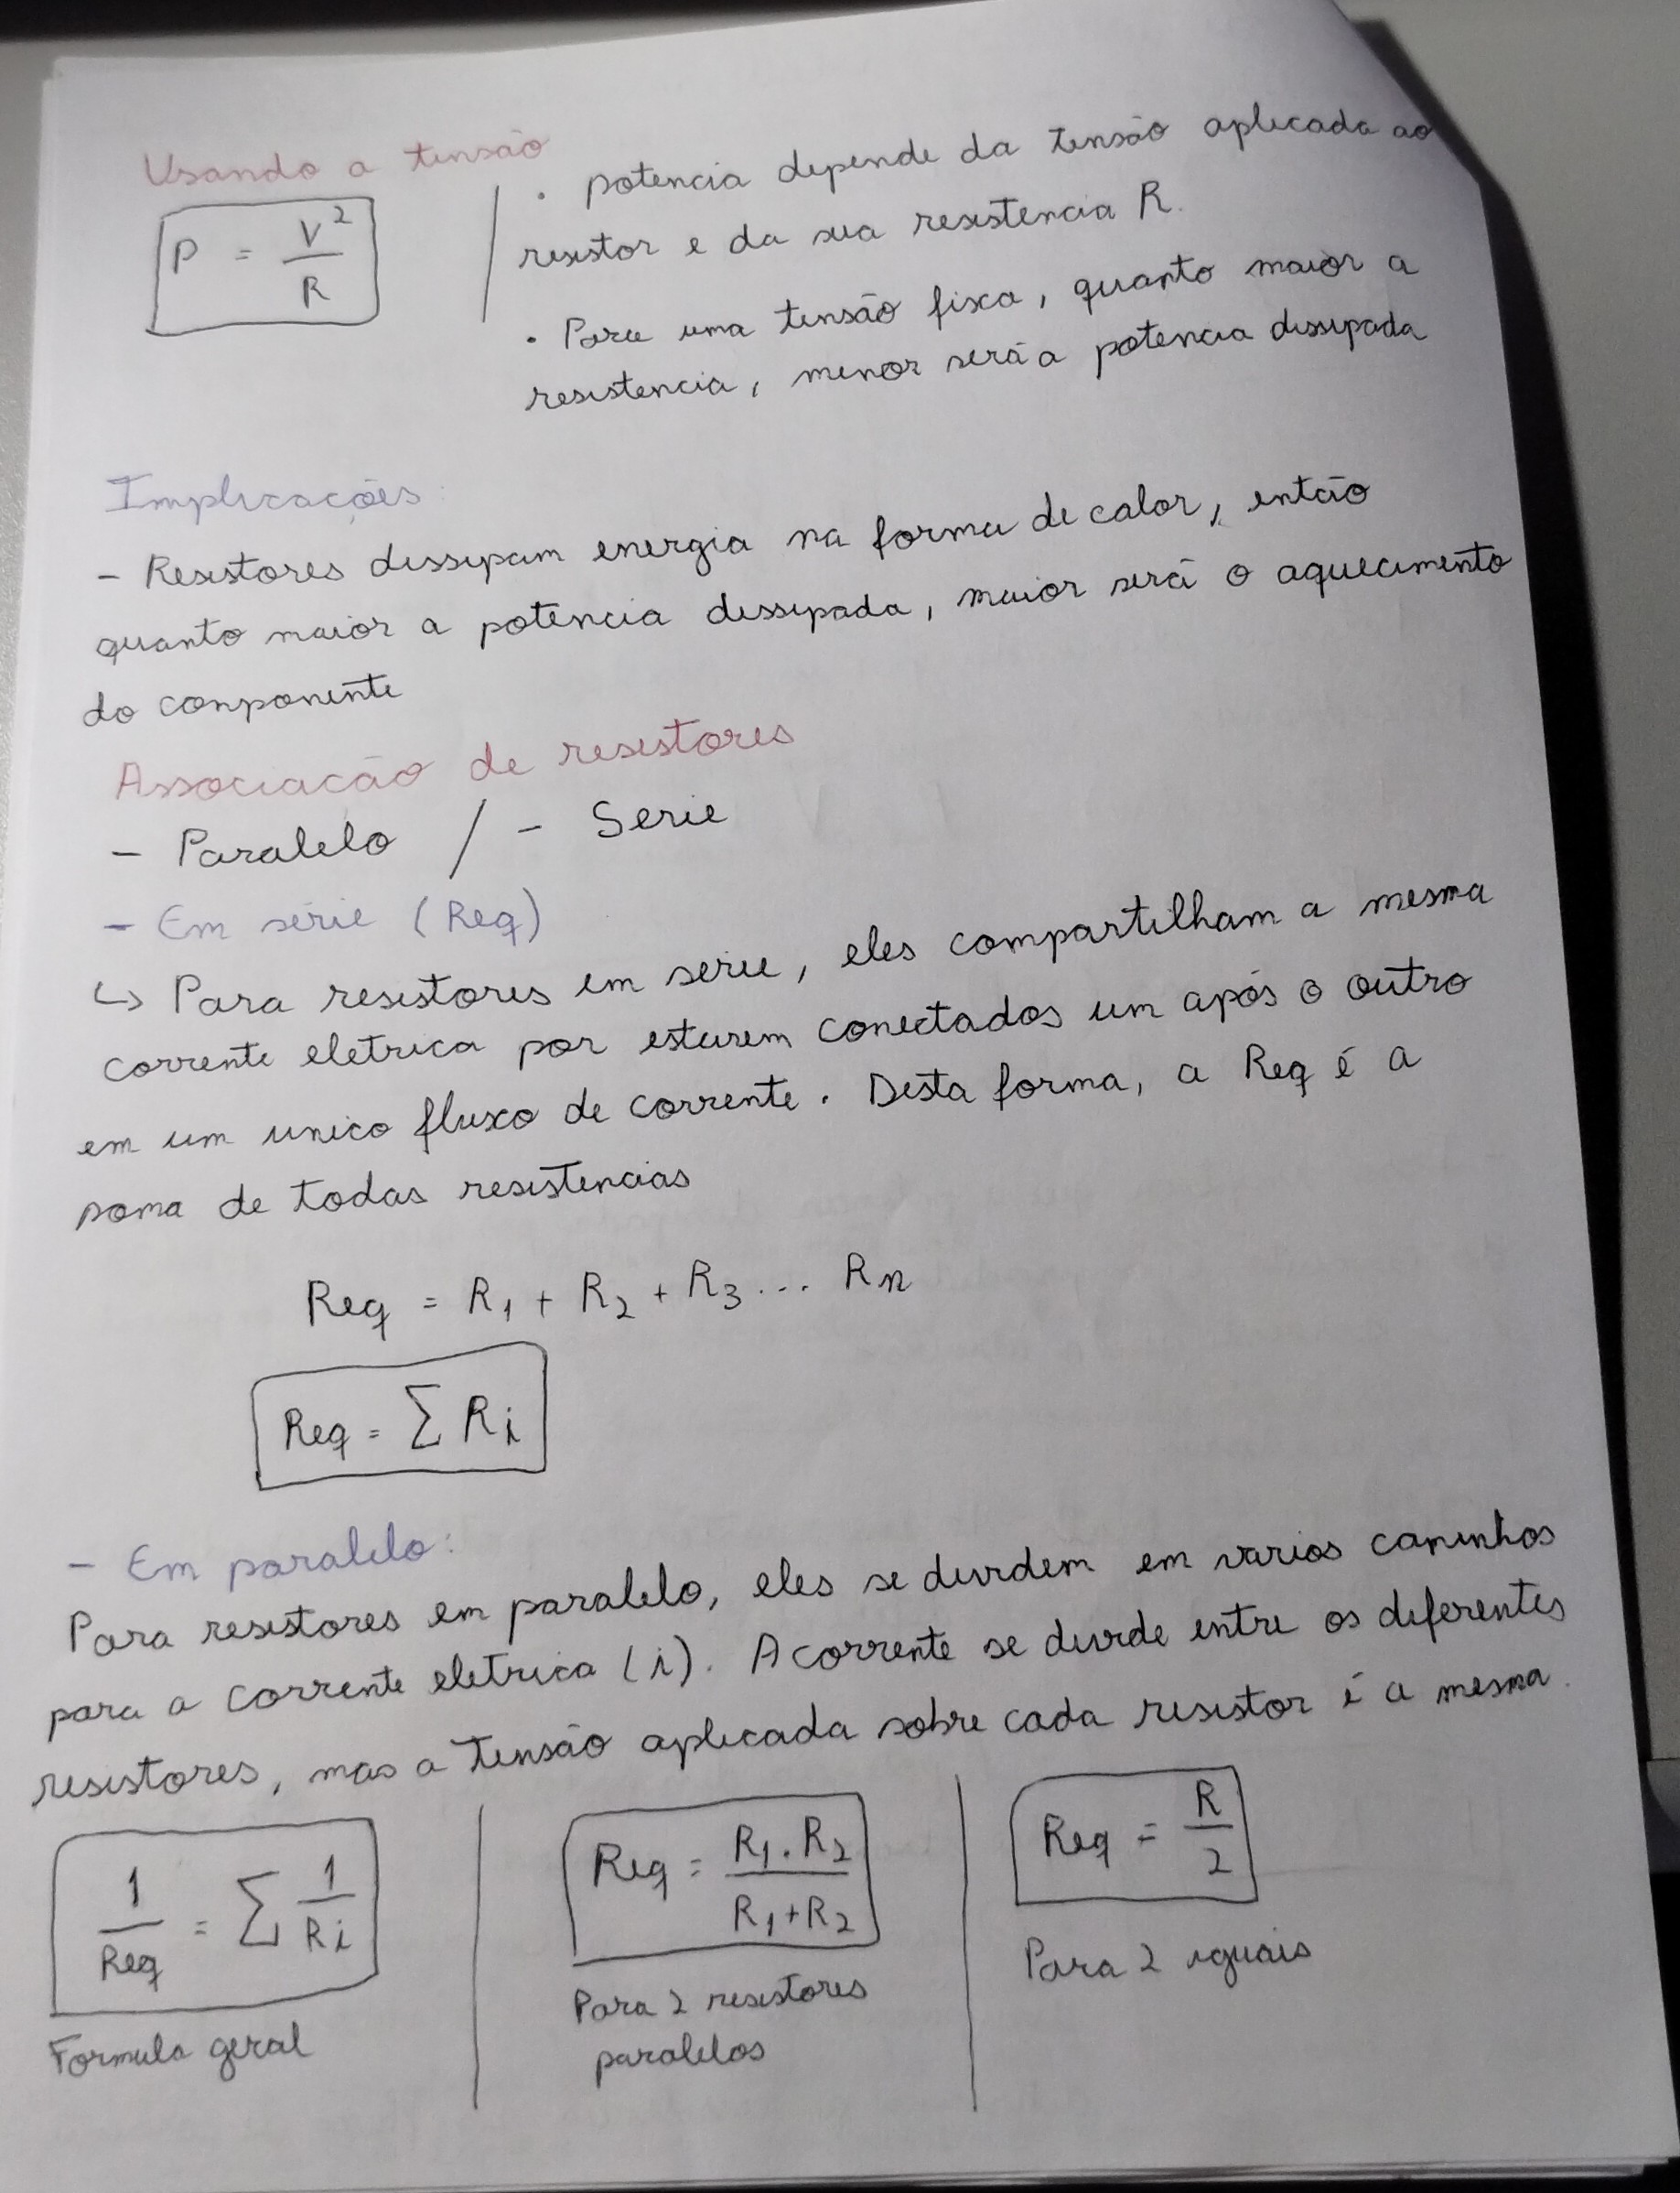 Usando a tensão
P = V²/R
• potencia depende da tensão aplicada ao
resistor e da sua resistencia R.
• Para uma tensão fixa, quanto maior a
resistencia, menor será a potencia dissipada
Implicações:
- Resistores dissipam energia na forma de calor, então
quanto maior a potência dissipada, maior será o aquecimento
do componente
Associacão de resistores
- Paralelo / - Serie
- Em série (Req)
↳ Para resistores em serie, eles compartilham a mesma
corrente eletrica por estarem conectados um após o outro
em um unico fluxo de corrente. Desta forma, a Req é a
soma de todas resistencias
Req = R₁ + R₂ + R₃ ... Rn
Req = ∑ Ri
- Em paralelo:
Para resistores em paralelo, eles se dividem em varios caminhos
para a corrente eletrica (i). A corrente se divide entre os diferentes
resistores, mas a tensão aplicada sobre cada resistor é a mesma.
1/Req = ∑ 1/Ri
Formula geral
Req = R₁ . R₂ / R₁ + R₂
Para 2 resistores
paralelos
Req = R/2
Para 2 iguais